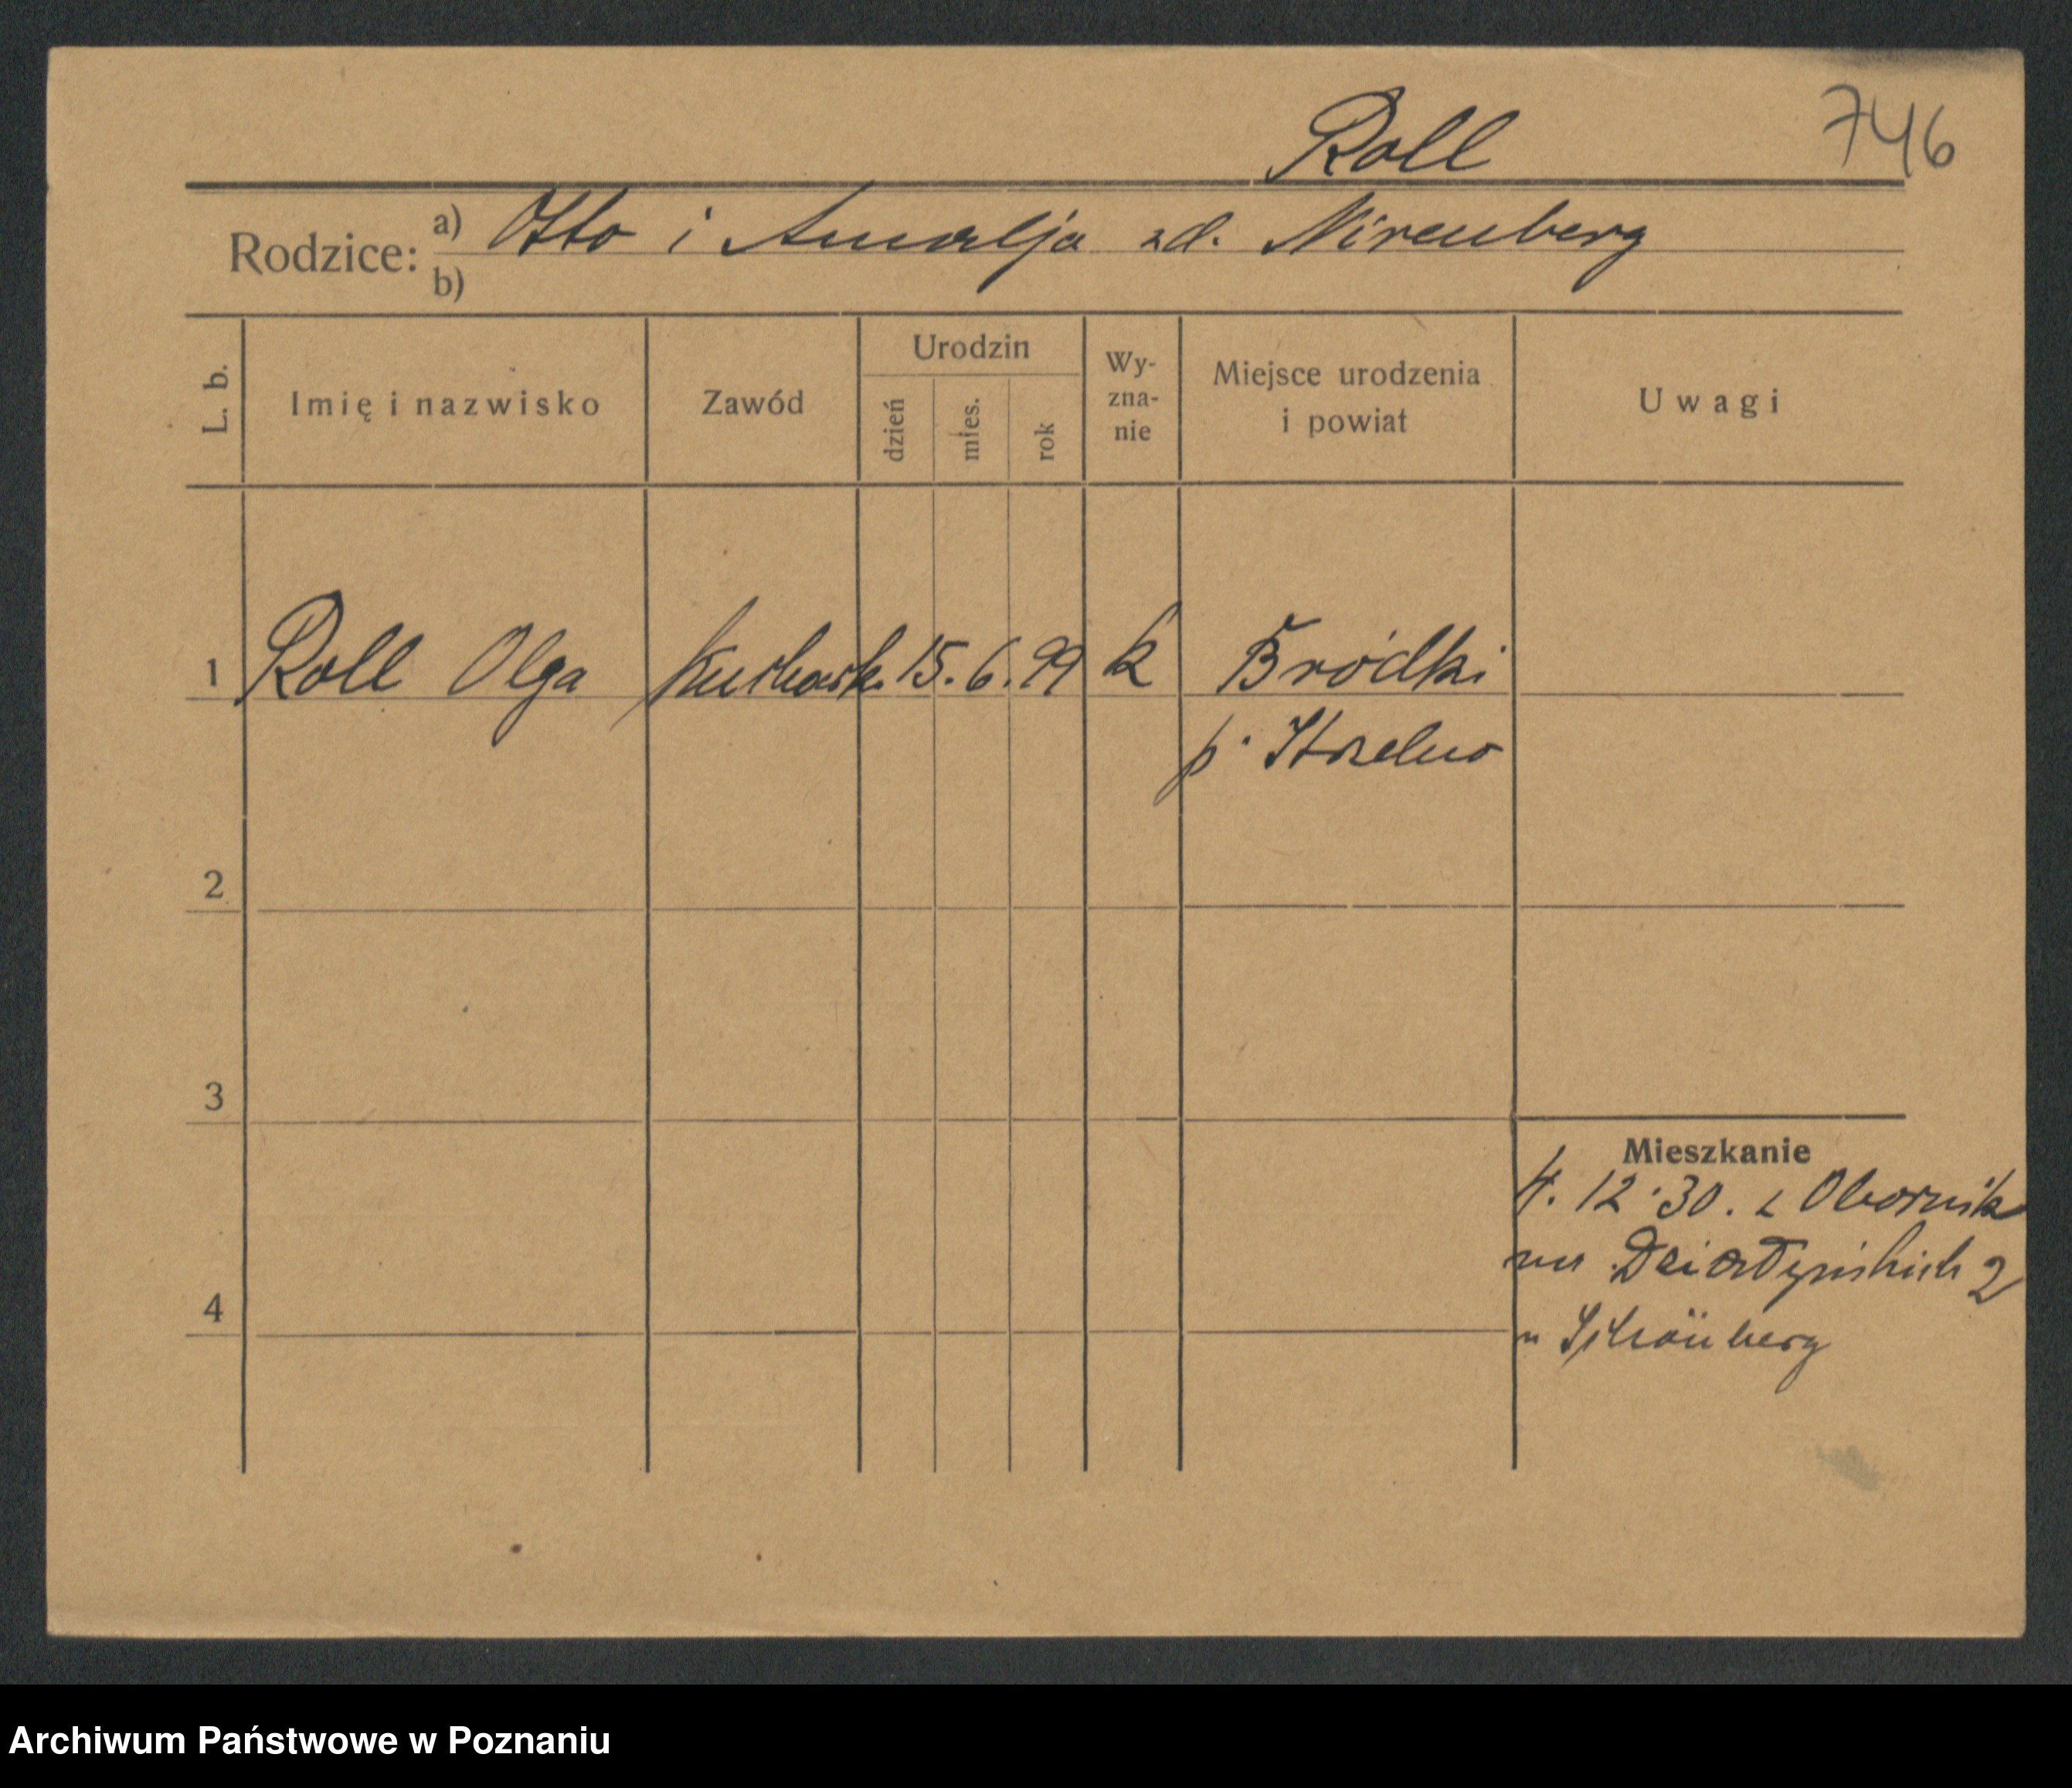 Roll 746
Rodzice: a) Otto i Amalja zd. Nirenberg
b)
L. b. Imię i nazwisko Zawód Urodzin dzień mies. rok Wy-zna-nie Miejsce urodzenia i powiat Uwagi
1 Roll Olga Kuchark. 15. 6. 99 k Bródki
p. Strzelno
2
3
Mieszkanie
4. 12. 30. z Obornik
na Działyńskich 2
4
u Schönberg
Archiwum Państwowe w Poznaniu